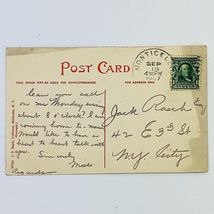 POST CARD
THIS SPACE MAY BE USED FOR CORRESPONDENCE
FOR ADDRESS ONLY
MONTICELLO
SEP
15
430PM
1907
Can you call
on me Monday evening
about 8 o'clock? I am
coming home to-morrow
Would like to have a
heart to heart talk with
you.
Sincerely
Jack Rasch Esq
42 E 33 St
N.Y. City